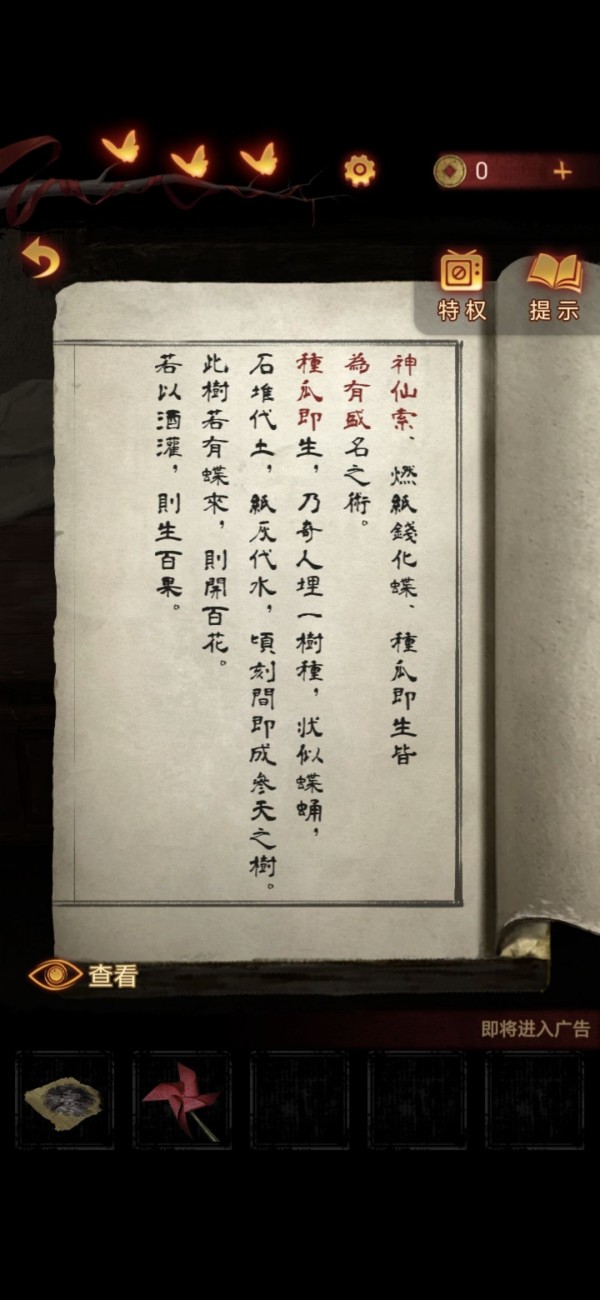 0
特权
提示
神仙索、燃紙錢化蝶、種瓜即生皆
為有盛名之術。
種瓜即生，乃奇人埋一樹種，狀似蝶蛹，
石堆代土，紙灰代水，頃刻間即成參天之樹。
此樹若有蝶來，則開百花。
若以酒灌，則生百果。
查看
即将进入广告